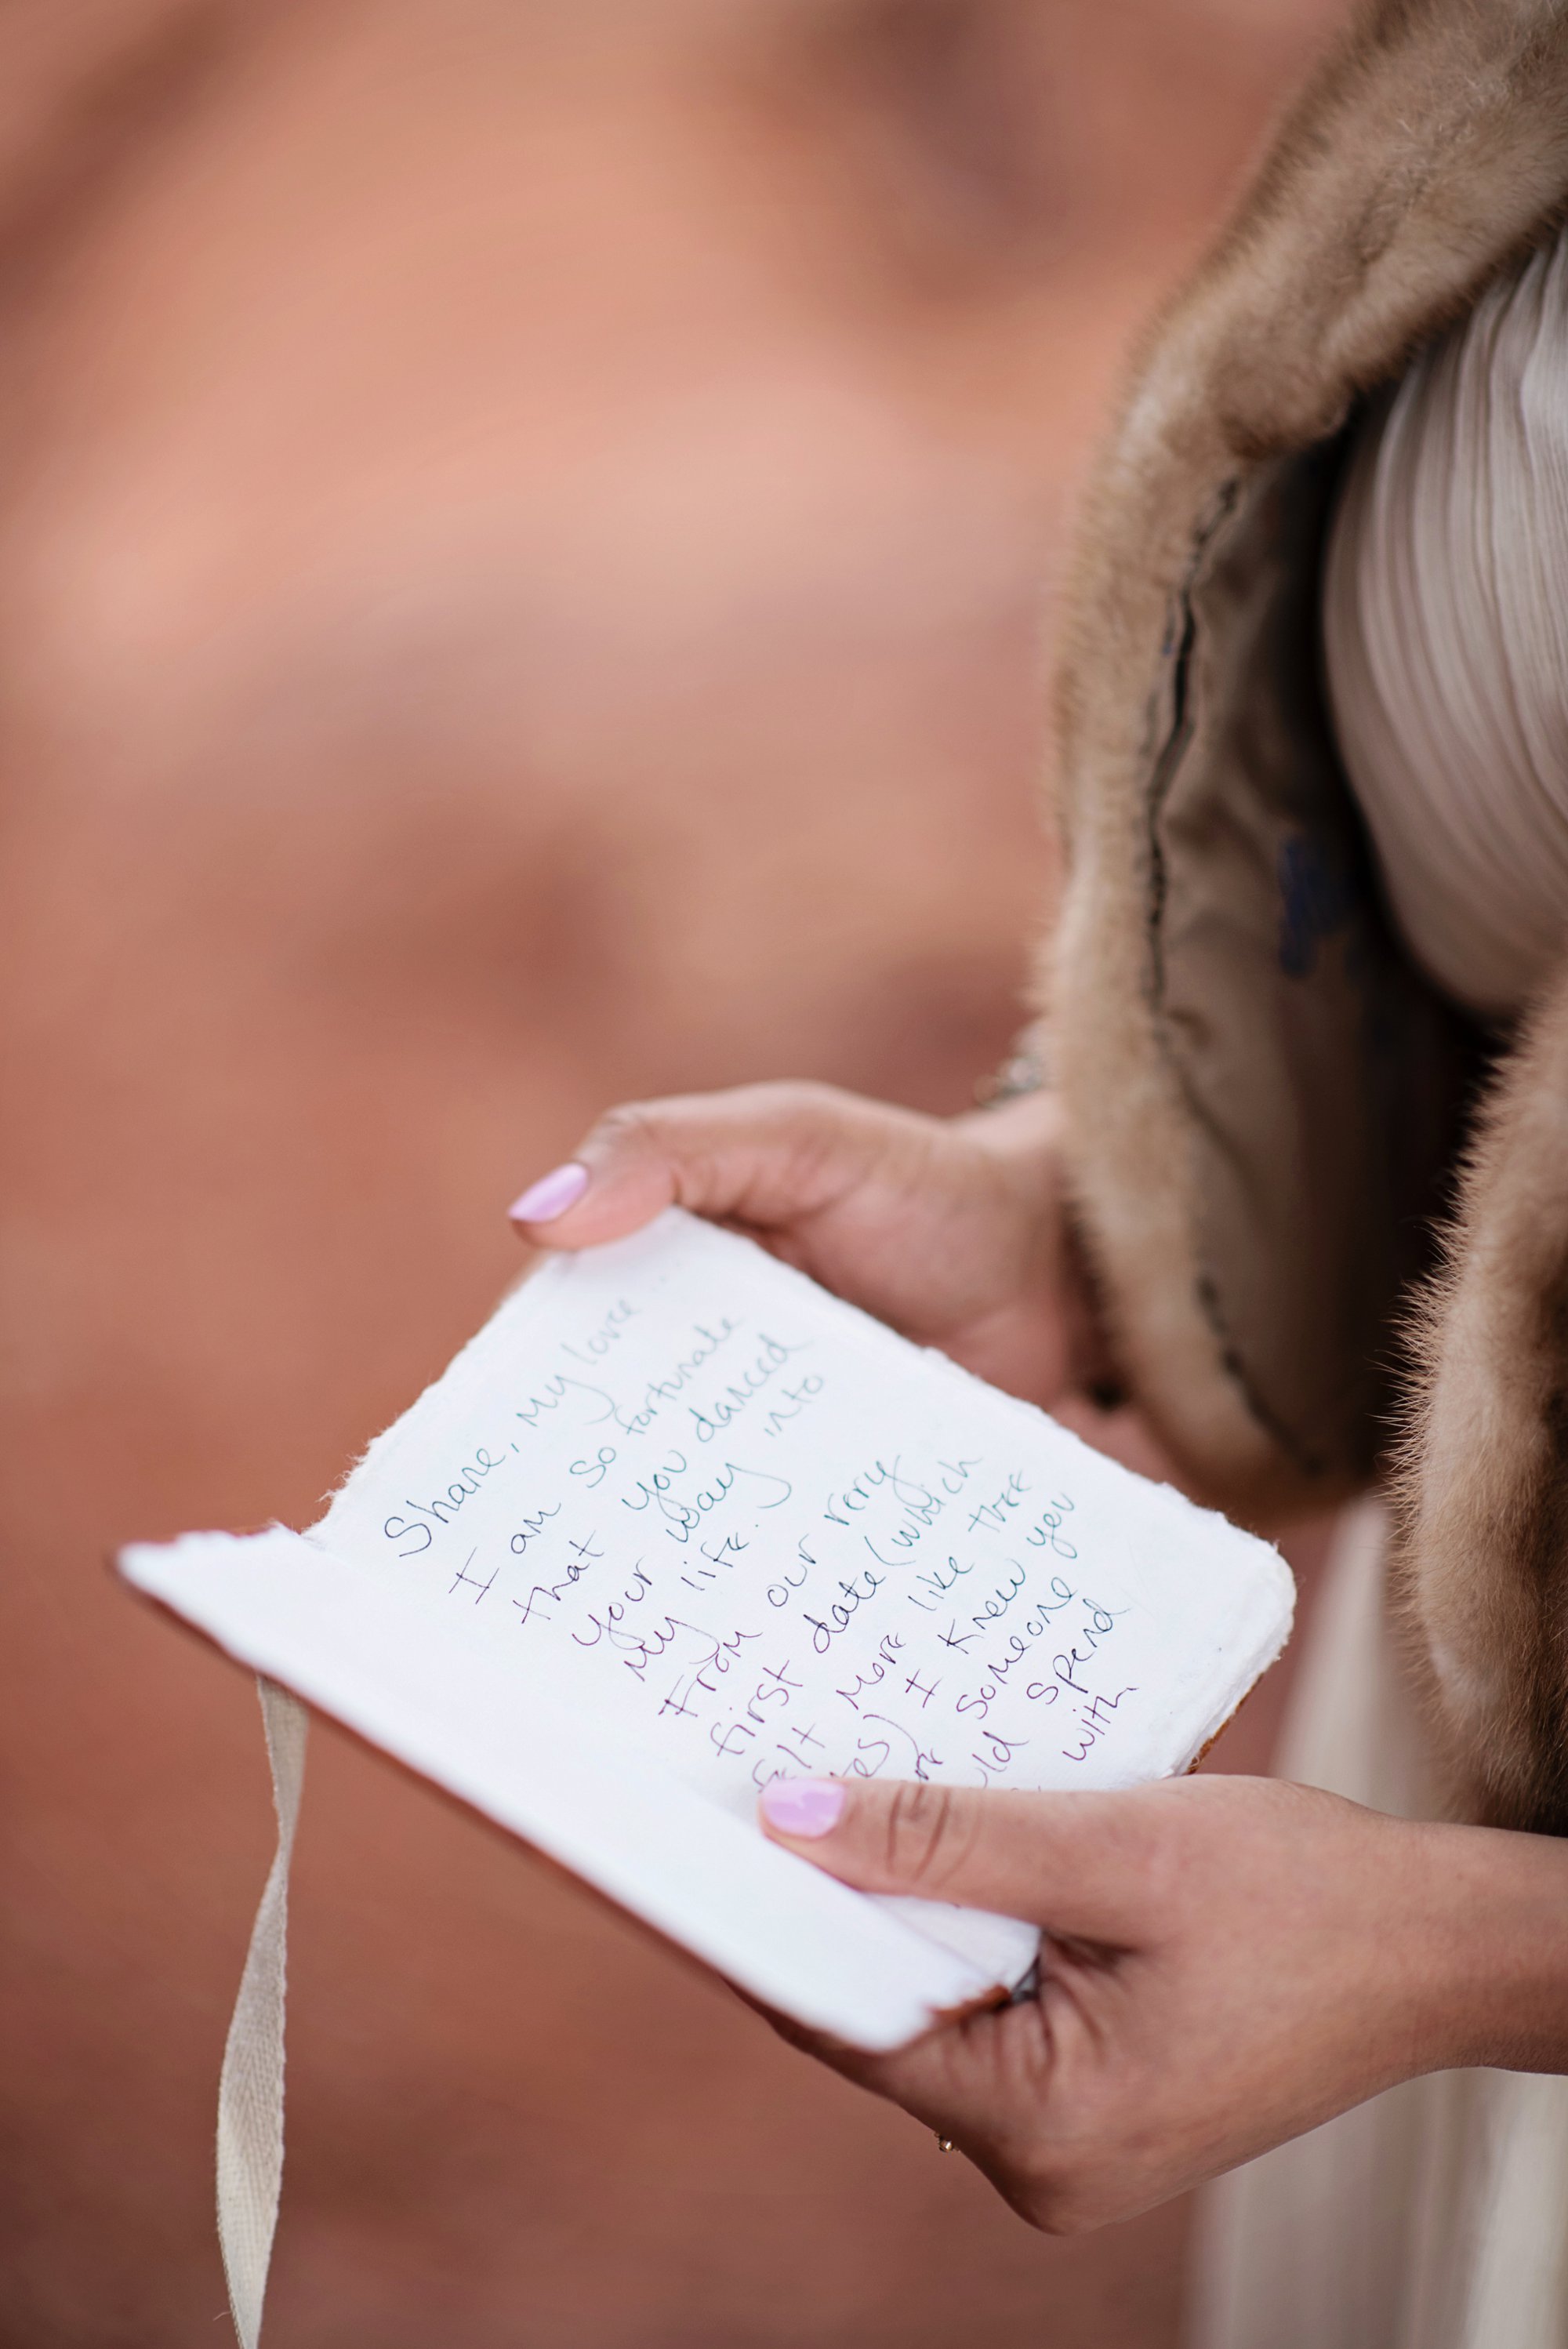 Shane, My love ...
I am so fortunate
that you danced
your way into
My life.
From our very
first date (which
felt more like three
I knew you
someone
spend
with